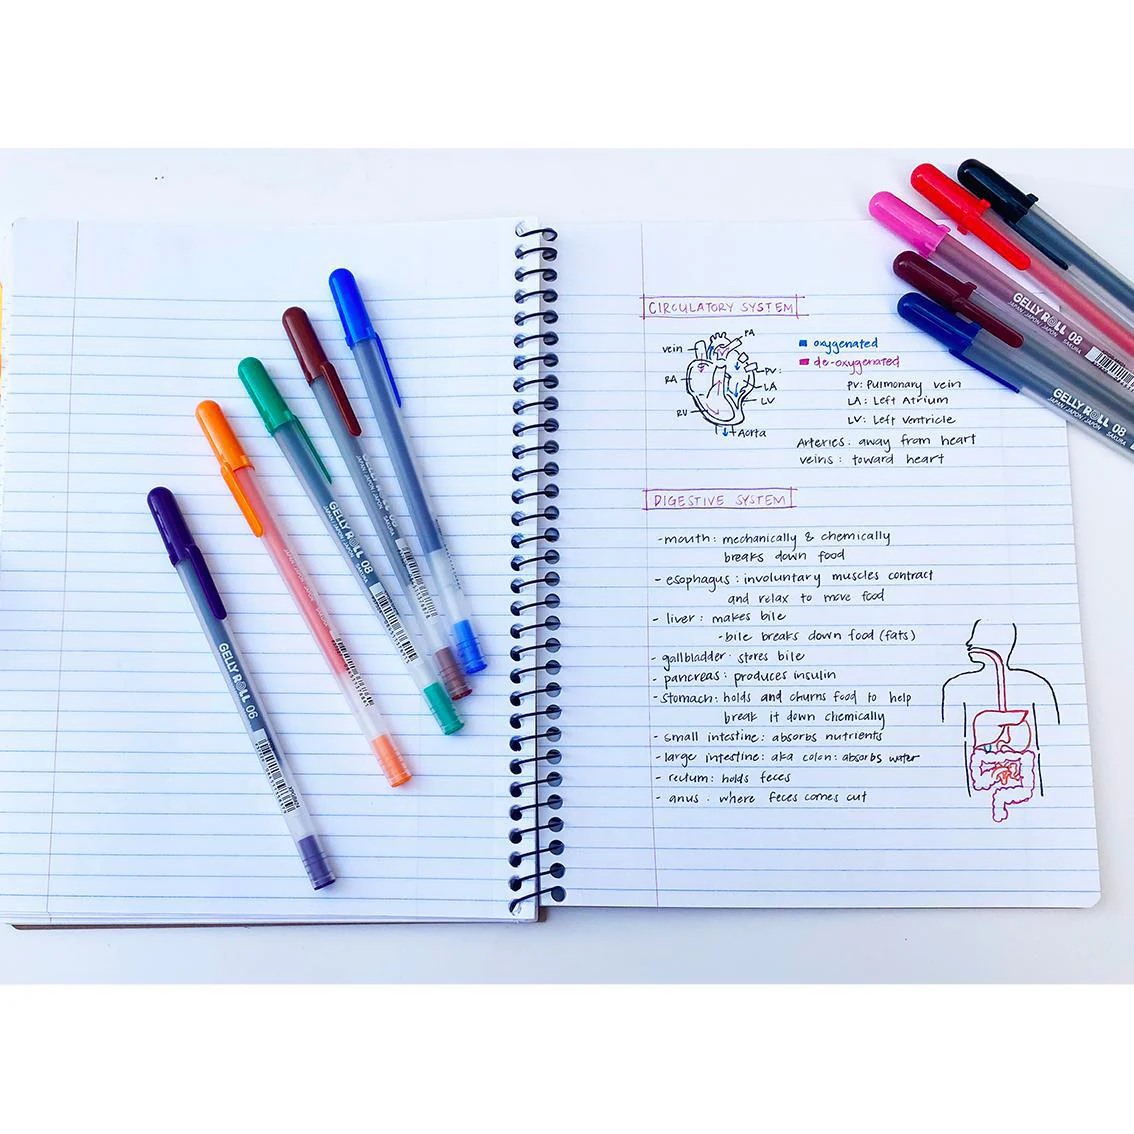 CIRCULATORY SYSTEM
PA
vein
PV
RA
LA
LV
RV
Aorta
oxygenated
de-oxygenated
PV: Pulmonary vein
LA: Left Atrium
LV: Left Ventricle
Arteries: away from heart
veins: toward heart
DIGESTIVE SYSTEM
- mouth: mechanically & chemically
breaks down food
- esophagus: involuntary muscles contract
and relax to move food
- liver: makes bile
- bile breaks down food (fats)
- gallbladder: stores bile
- pancreas: produces insulin
- stomach: holds and churns food to help
break it down chemically
- small intestine: absorbs nutrients
- large intestine: aka colon: absorbs water
- rectum: holds feces
- anus: where feces comes out
GELLY ROLL 06
GELLY ROLL 08
JAPAN/JAPON/JAPÓN SAKURA
GELLY ROLL 08
JAPAN/JAPON/JAPÓN SAKURA
GELLY ROLL 08
JAPAN/JAPON/JAPÓN SAKURA